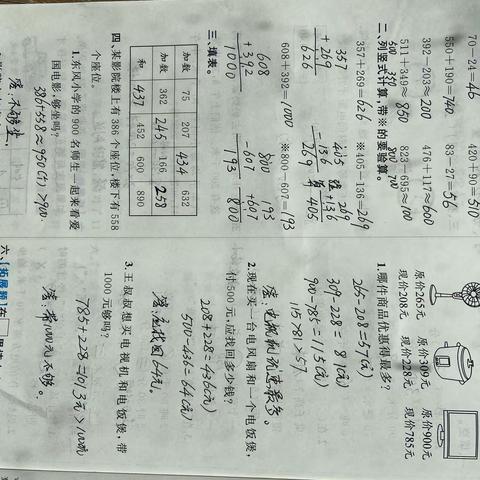 70-24=46
420+90=510
550+190=740
83-27=56
392-203≈200
476+117≈600
511+349≈850
823-695≈100
500 350
800 700
二、列竖式计算,带※的要验算。
357+269=626
※405-136=269
357
+269
626
405
-136
269
验
269
+136
405
608+392=1000
※800-607=193
608
+392
1000
800
-607
193
193
+607
800
三、填表。
加数 75 207 434 632
加数 362 245 166 258
和 437 452 600 890
四、某影院楼上有386个座位,楼下有558
个座位。
1.东风小学的900名师生一起来看爱
国电影,够坐吗?
386+558≈950(个)>900
答:不够坐。
原价265元 原价309元 原价900元
现价208元 现价228元 现价785元
1.哪件商品优惠得最多?
265-208=57(元)
309-228=81(元)
900-785=115(元)
115>81>57
答:电视机优惠最多。
2.现在买一台电风扇和一个电饭煲,
付500元,应找回多少钱?
208+228=436(元)
500-436=64(元)
答:应找回64元。
3.王叔叔想买电视机和电饭煲,带
1000元够吗?
785+228=1013元>1000元
答:带1000元不够。
六、【拓展题】在